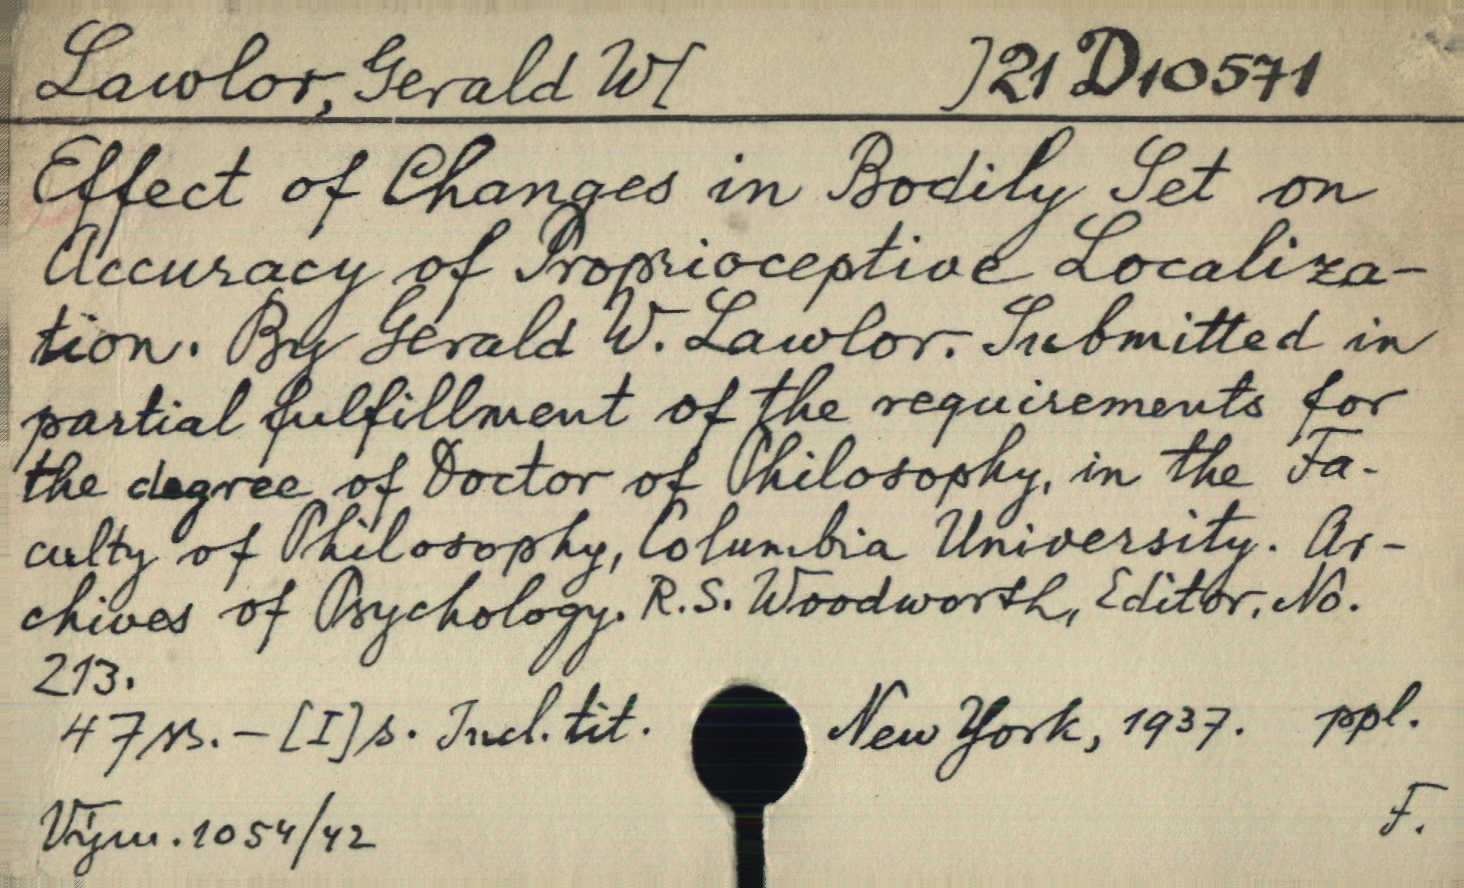 Lawlor, Gerald W/ ]21 D10571
Effect of Changes in Bodily Set on
Accuracy of Proprioceptive Localiza-
tion. By Gerald W. Lawlor. Submitted in
partial fulfillment of the requirements for
the degree of Doctor of Philosophy, in the Fa-
culty of Philosophy, Columbia University. Ar-
chives of Psychology. R.S. Woodworth, Editor, No.
213.
47 ss. - [I] s. Incl. tit. New York, 1937. ppl.
Vým. 1054/42 F.